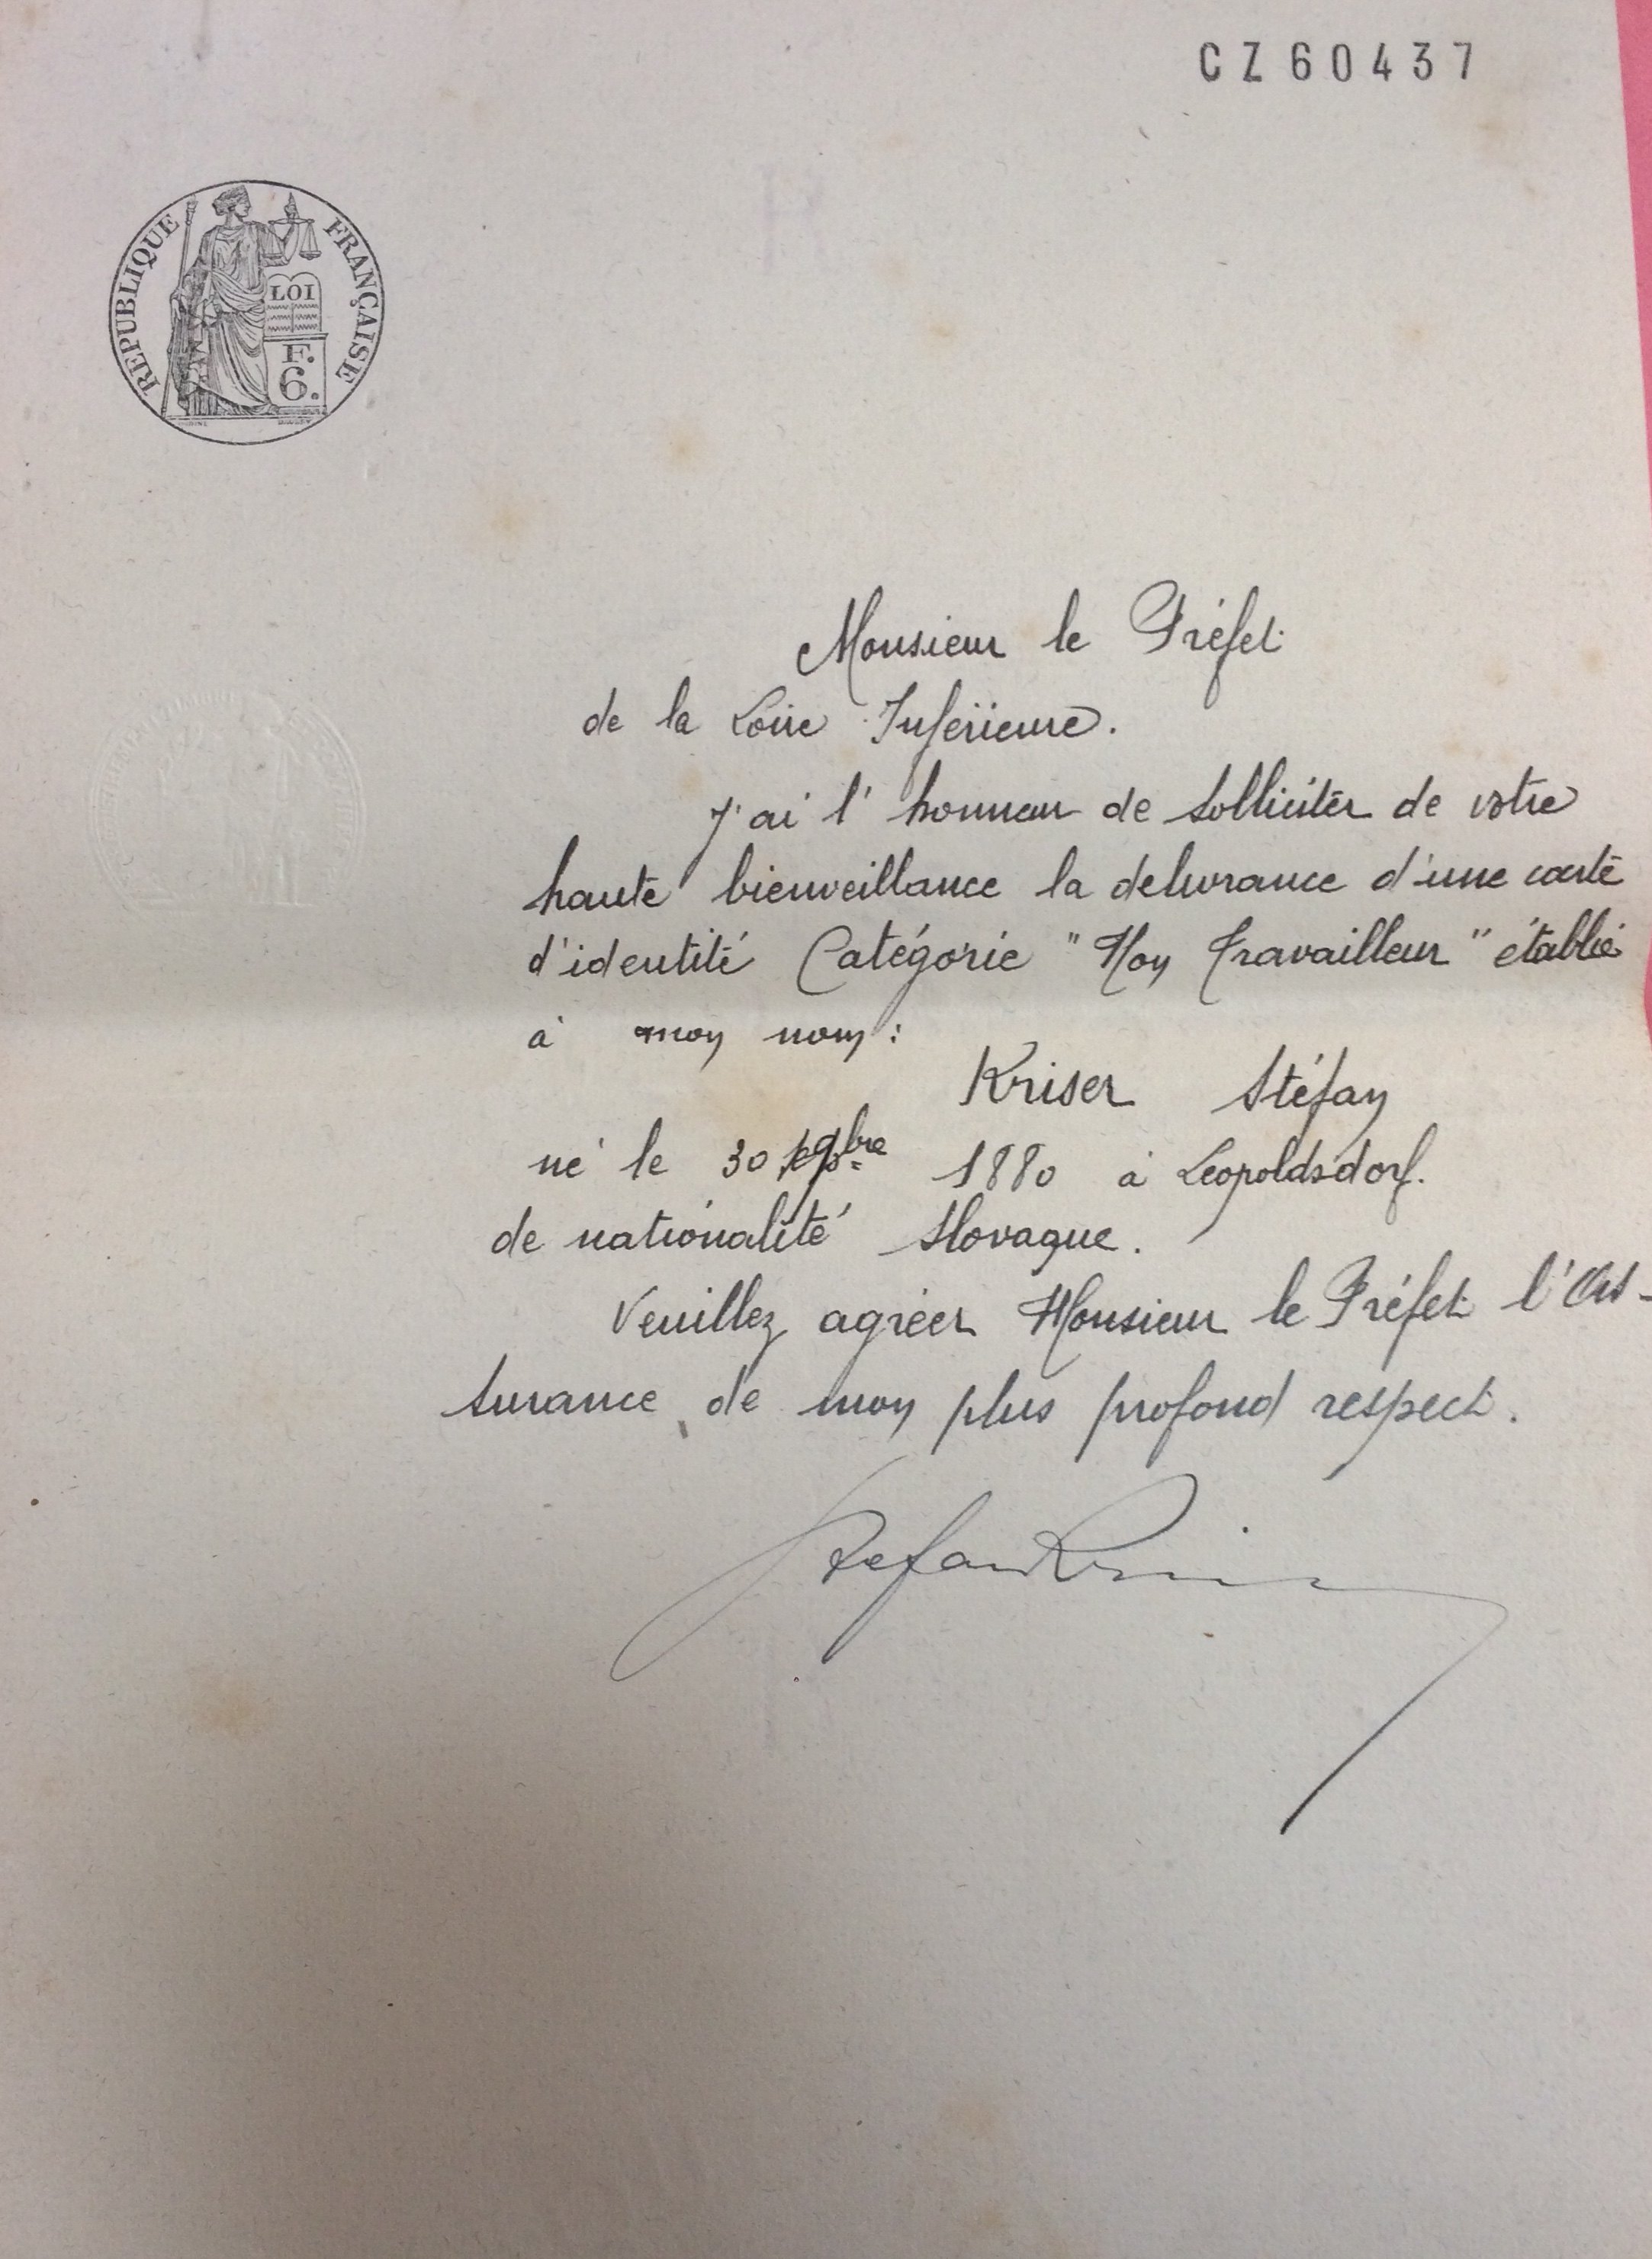 CZ60437
REPUBLIQUE FRANÇAISE
LOI
F.
6.
Monsieur le Préfet
de la Loire Inférieure.
J'ai l'honneur de solliciter de votre
haute bienveillance la delivrance d'une carte
d'identité Catégorie "Non Travailleur" établie
à mon nom:
Kriser Stéfan
né le 30 1880 à Leopoldsdorf.
de nationalité Slovaque.
Veuillez agréer Monsieur le Préfet l'As-
surance de mon plus profond respect.
Stefan Kriser